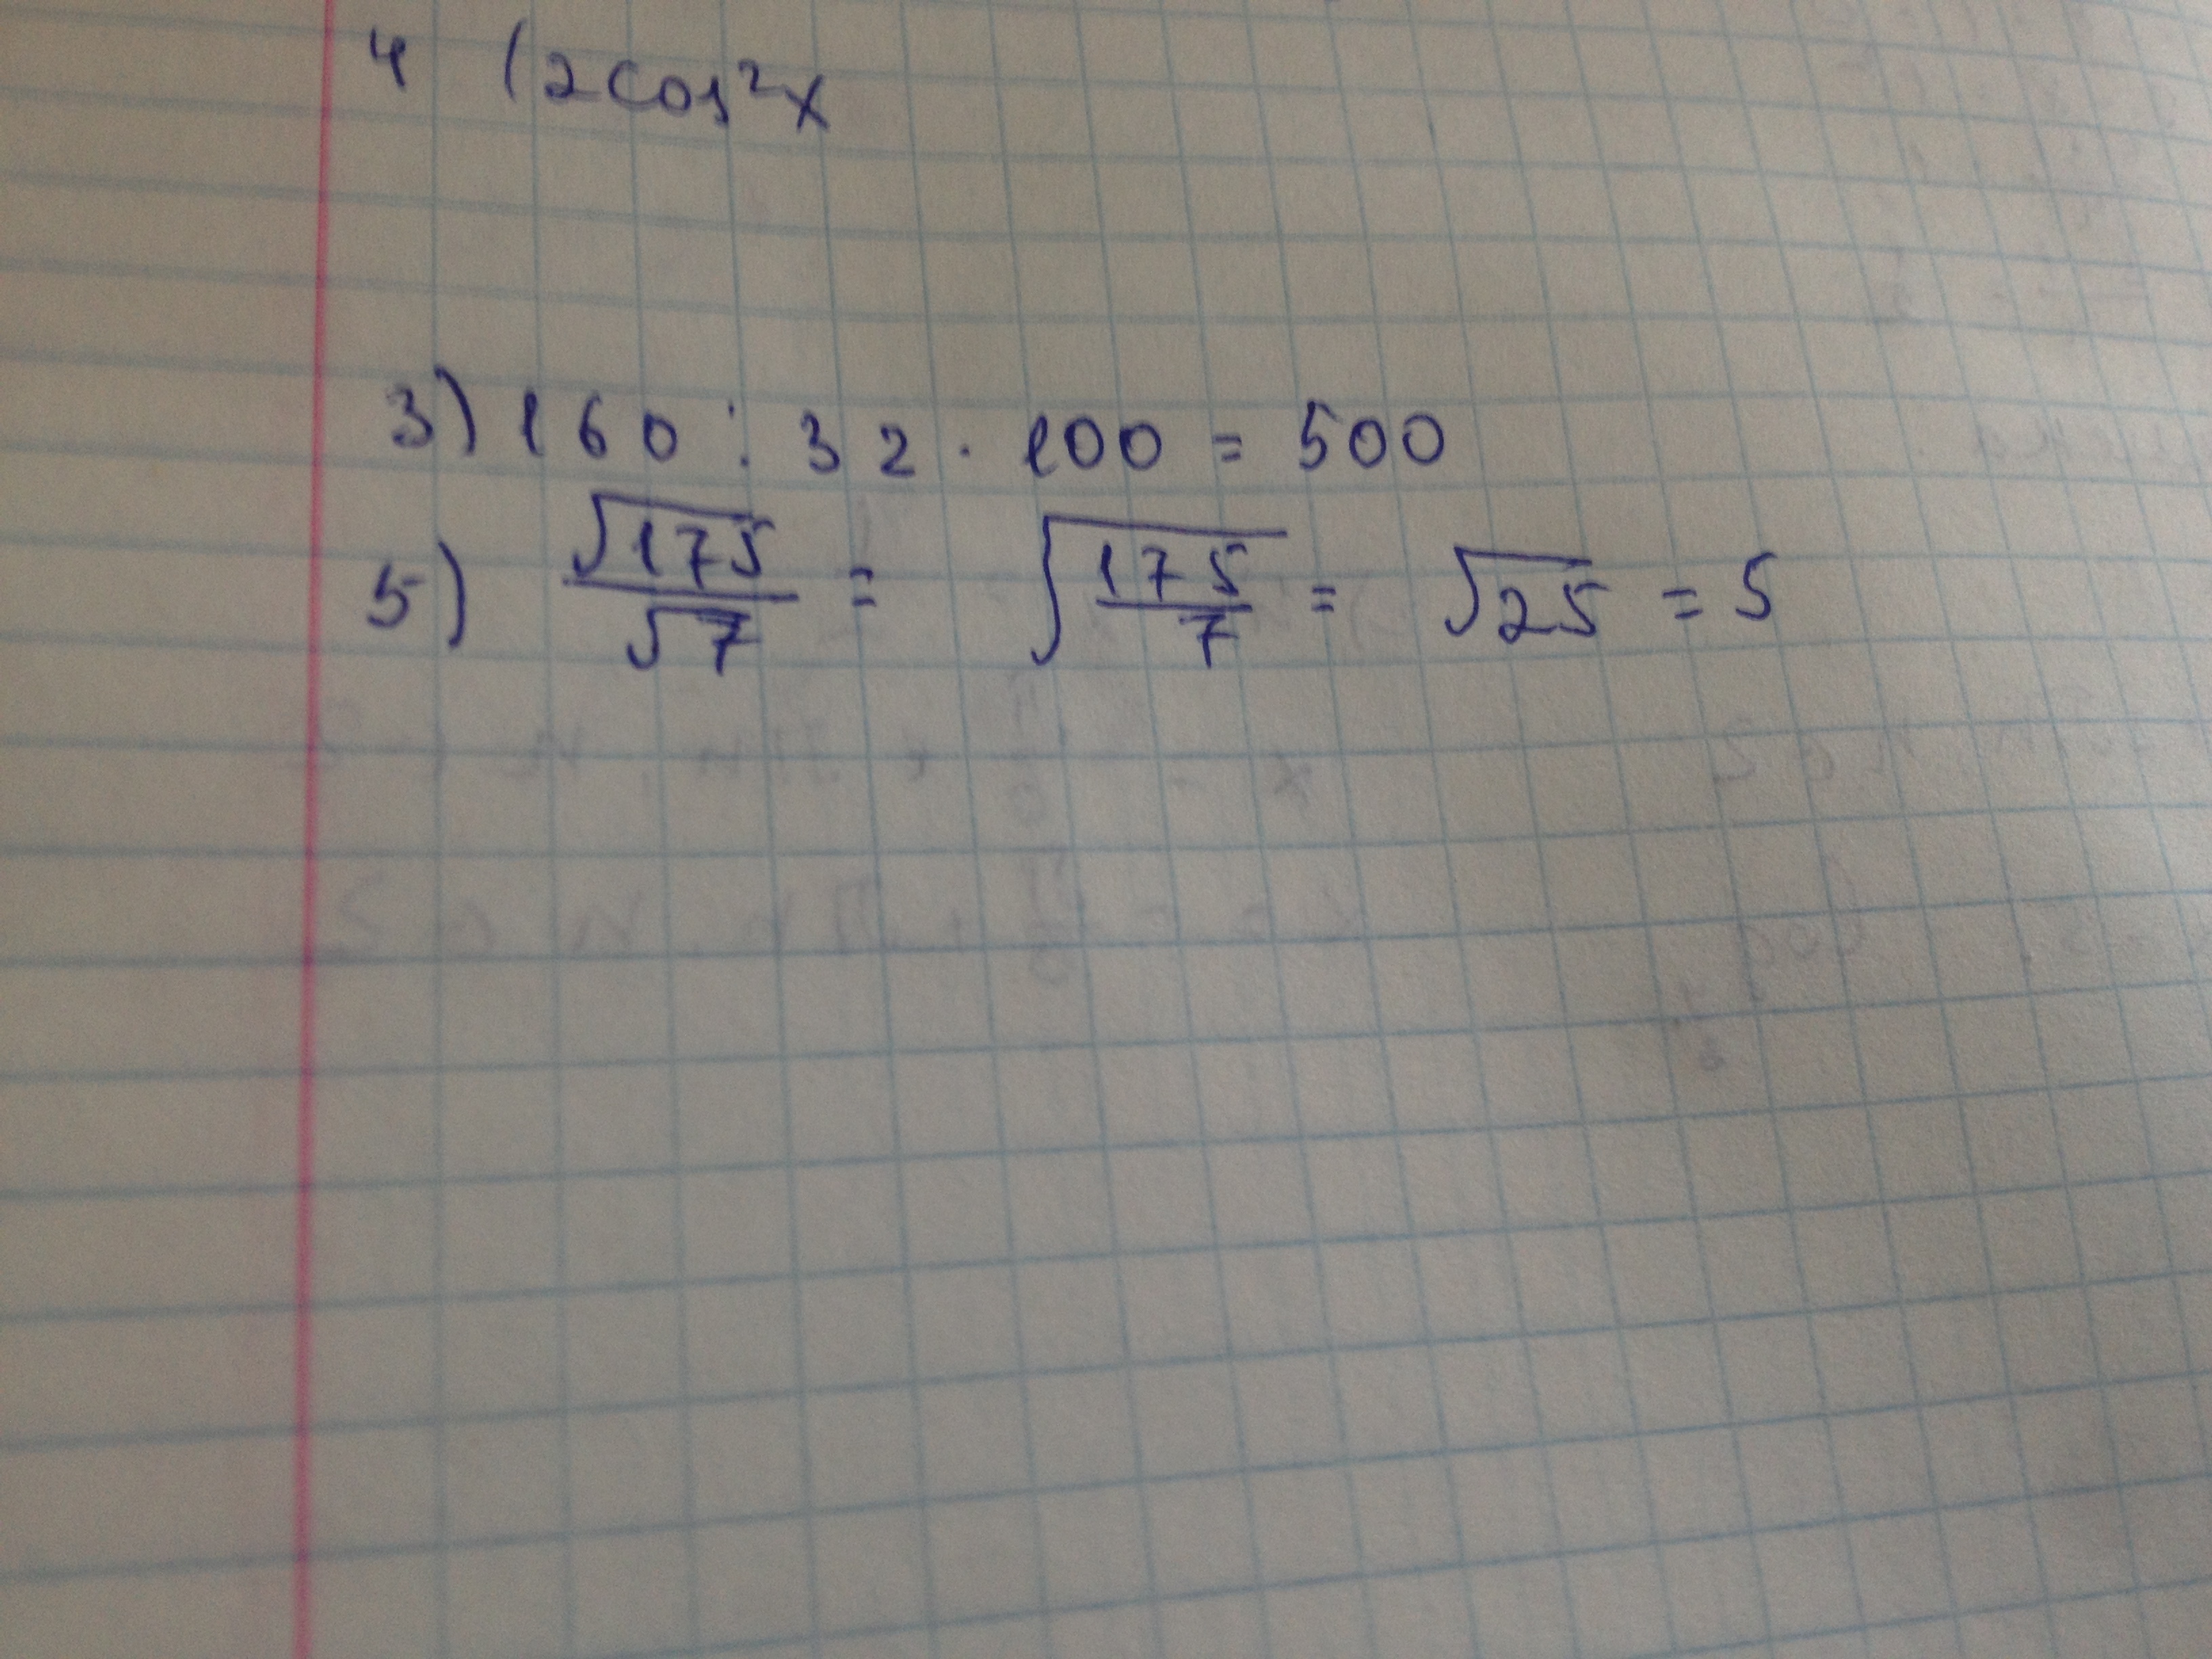 4 (2cos²x
3) 160 : 32 · 100 = 500
5) √175/√7 = √(175/7) = √25 = 5